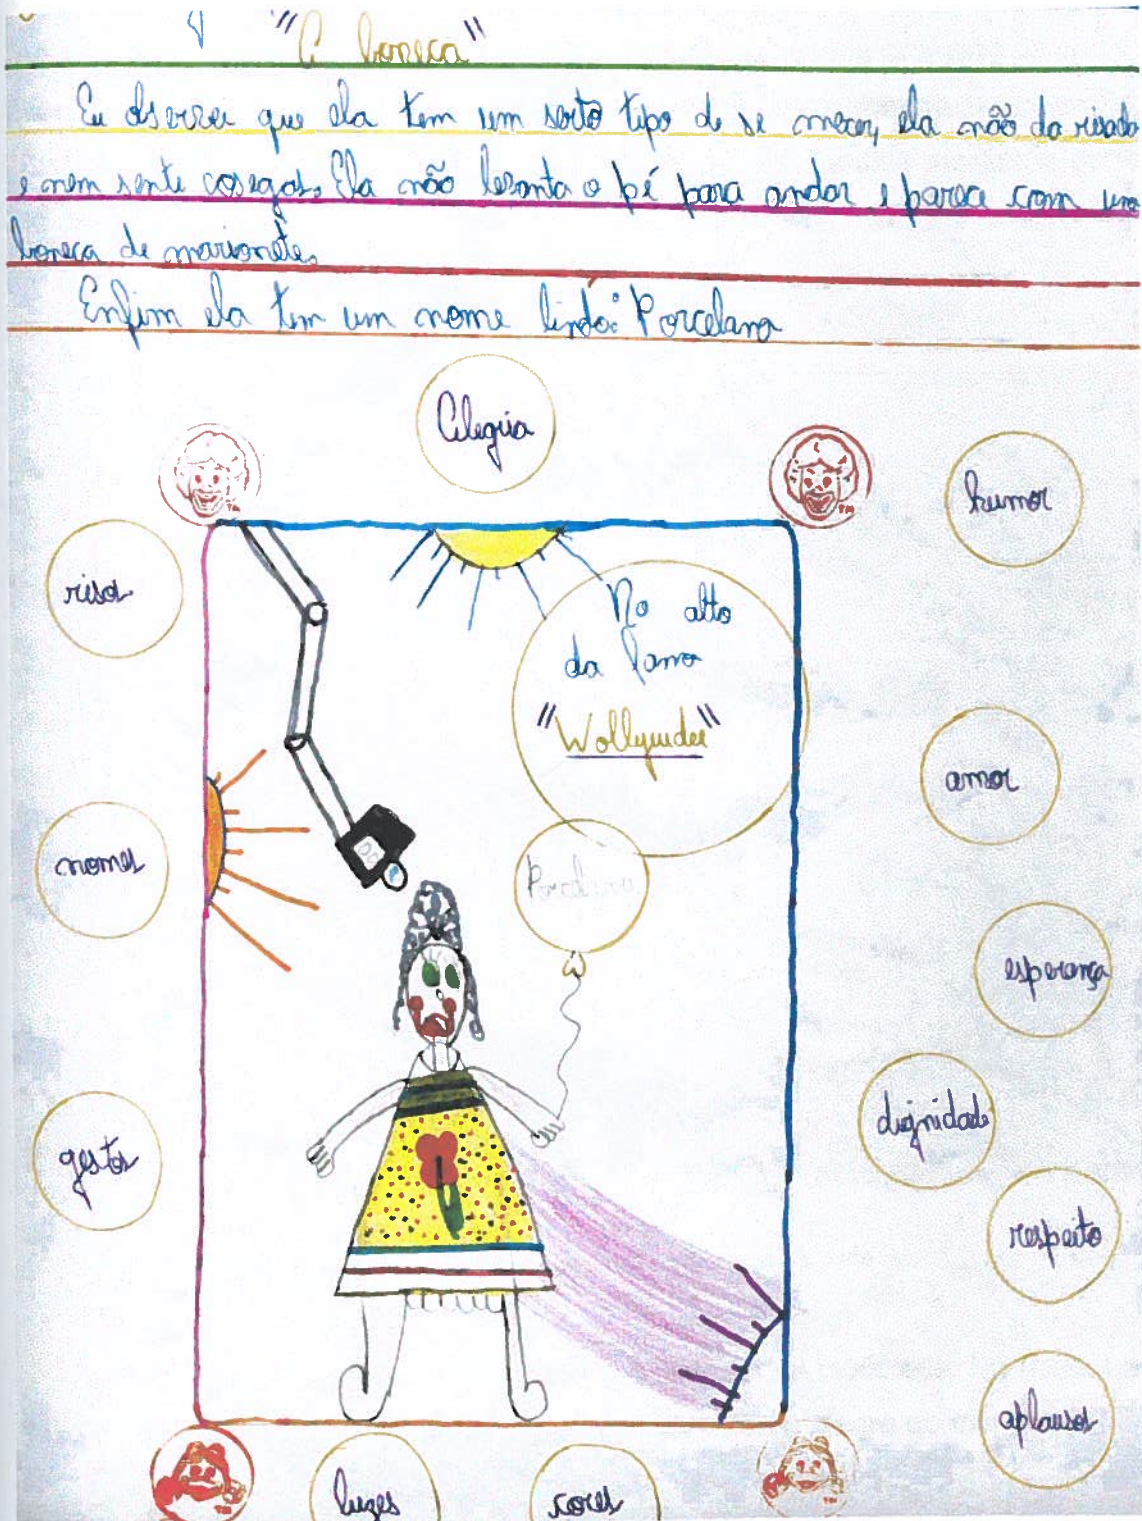 "A boneca"
Eu observei que ela tem um serto tipo de se mecer, ela não da risada
e nem sente cosegas. Ela não levanta o pé para andar e parece com uma
boneca de marionete.
Enfim ela tem um nome lindo: Porcelana
Alegria
humor
risos
No alto
da fama
"Wollyudee"
amor
nomes
Porcelana
esperança
dignidade
gestos
respeito
aplausos
luzes
cores
TM
TM
TM
TM